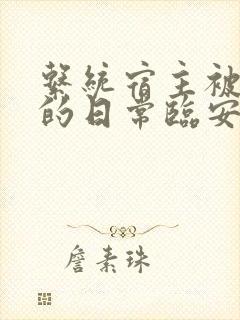 系統宿主被
的日常臨安
詹素珠